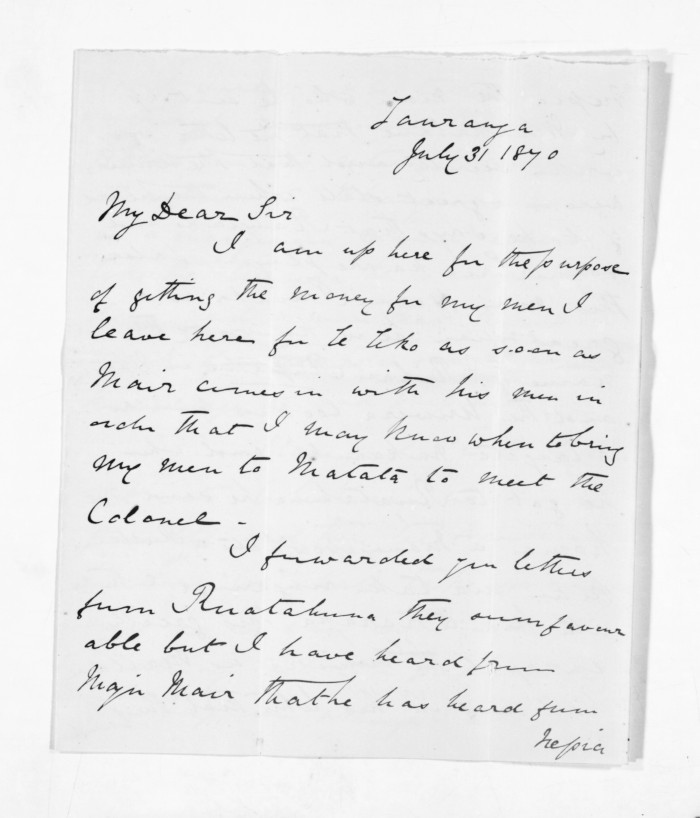 Tauranga
July 31 1870
My Dear Sir
I am up here for the purpose
of getting the money for my men I
leave here for Te Teko as soon as
Mair comes in with his men in
order that I may know when to bring
my men to Matata to meet the
Colonel -
I forwarded you letters
from Ruatahuna they seem favour
able but I have heard from
Major Mair that he has heard from
hepia